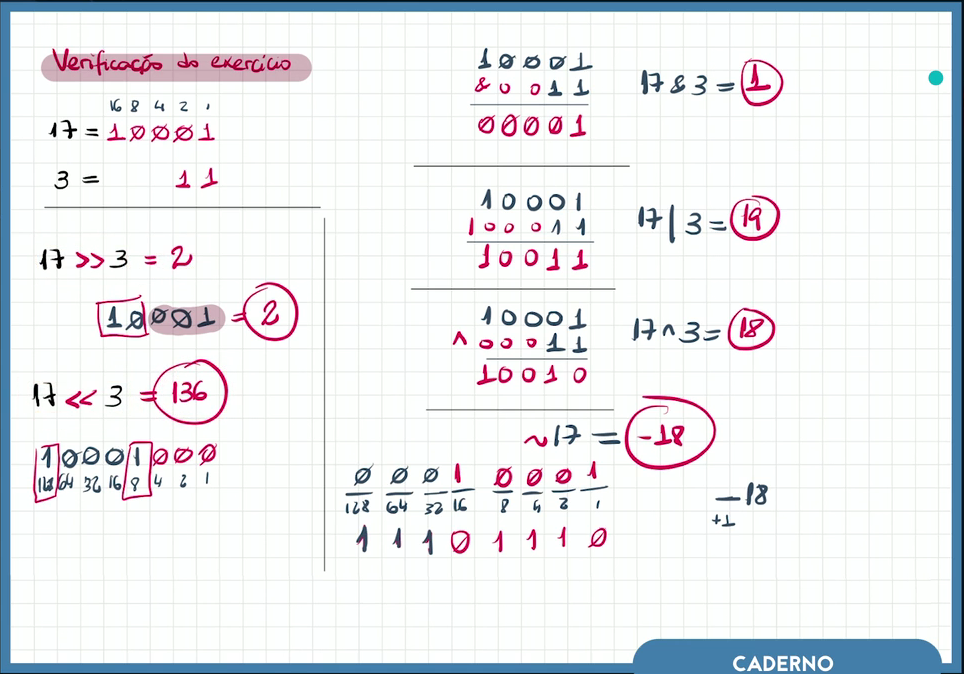 Verificação do exercício
16 8 4 2 1
17 = 10001
3 = 11
17 >> 3 = 2
10001 = 2
17 << 3 = 136
10001000
128 64 32 16 8 4 2 1
10001
& 0011
00001
17 & 3 = 1
10001
100011
10011
17 | 3 = 19
10001
^ 00011
10010
17 ^ 3 = 18
~17 = -18
0 0 0 1 0 0 0 1
128 64 32 16 8 4 2 1
1 1 1 0 1 1 1 0
-18
+1
CADERNO